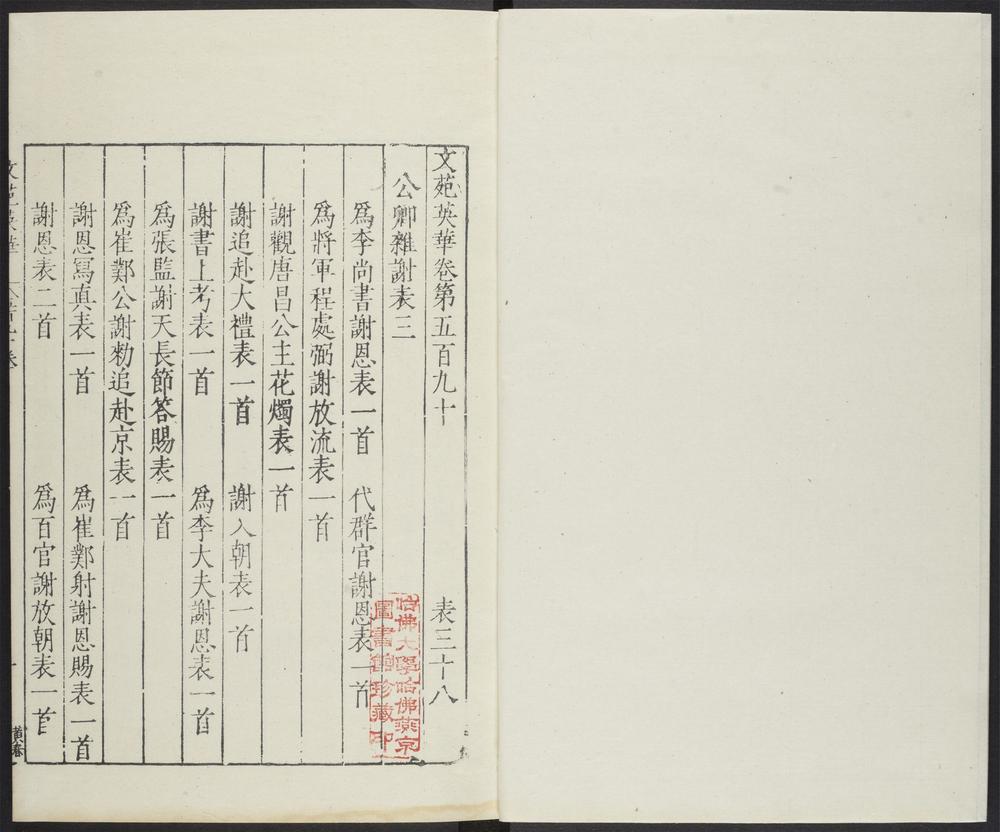 文苑英華卷第五百九十　表三十八
公卿雜謝表三
爲李尚書謝恩表一首　代群官謝恩表一首
爲將軍程處弼謝放流表一首
謝觀唐昌公主花燭表一首
謝追赴大禮表一首　謝入朝表一首
謝書上考表一首　爲李大夫謝恩表一首
爲張監謝天長節答賜表一首
爲崔鄴公謝勑追赴京表一首
謝恩寫真表一首　爲崔鄴射謝恩賜表一首
謝恩表二首　爲百官謝放朝表一首
文苑英華
哈佛大學哈佛燕京
圖書館珍藏印